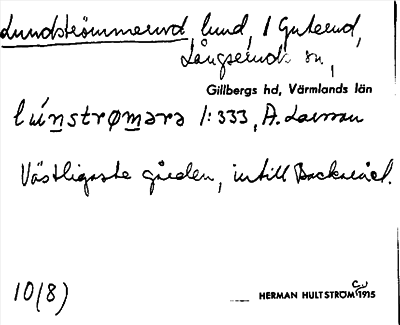 Lundströmmerud, lund, i Guterud,
Långseruds sn,
Gillbergs hd, Värmlands län
lúnstrømərə 1:333, A. Larsson
Västligaste gården, intill Backerud.
10(8)
HERMAN HULTSTRÖM 1915